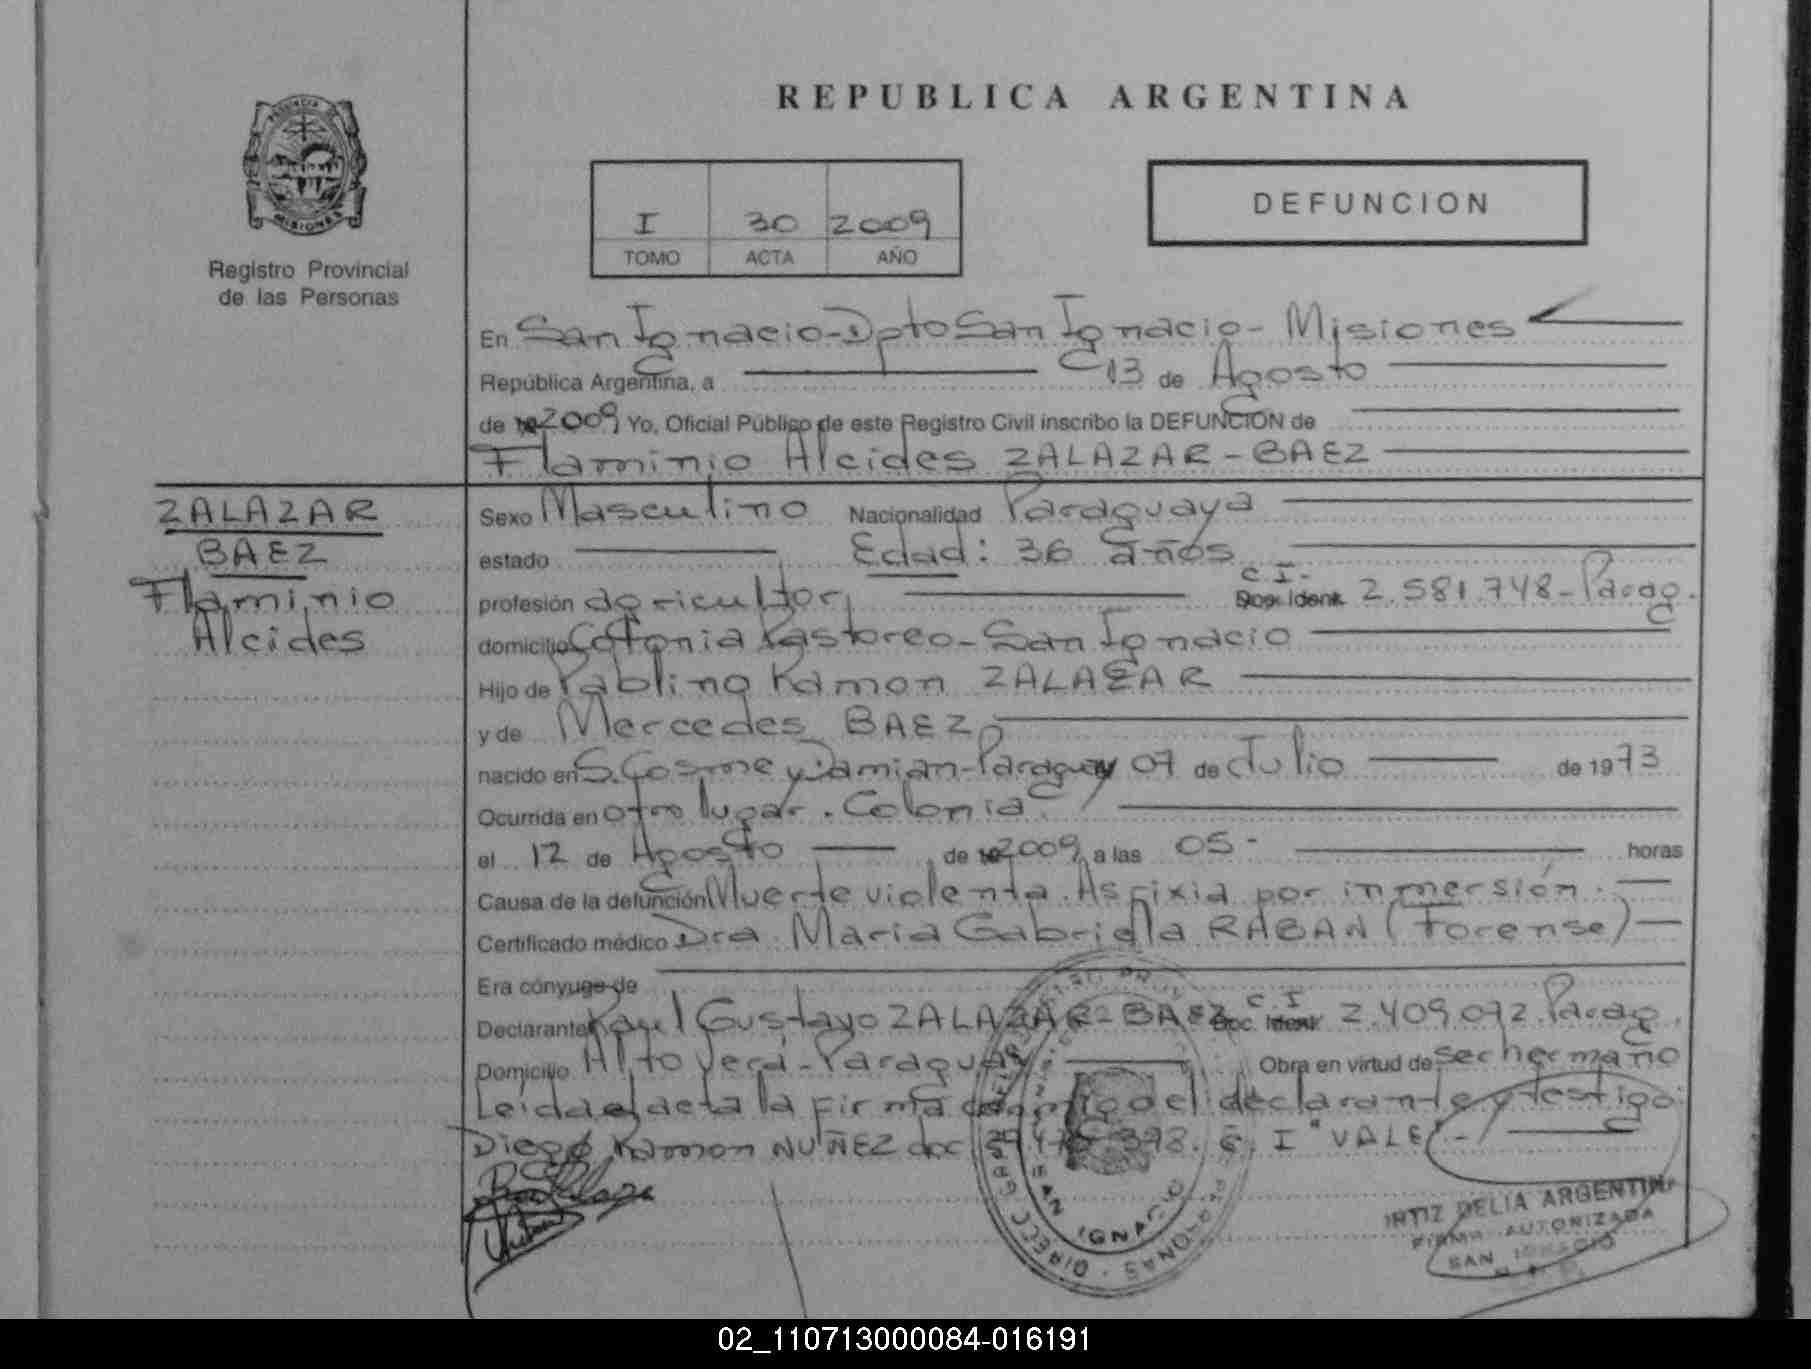 REPUBLICA ARGENTINA
PROVINCIA DE
MISIONES
Registro Provincial
de las Personas
I 30 2009
TOMO ACTA AÑO
DEFUNCION
En San Ignacio-Dpto San Ignacio- Misiones
República Argentina, a 13 de Agosto
de 2009 Yo, Oficial Público de este Registro Civil inscribo la DEFUNCION de
Flaminio Alcides ZALAZAR-BAEZ
ZALAZAR
BAEZ
Flaminio
Alcides
Sexo Masculino Nacionalidad Paraguaya
estado Edad: 36 años
C I-
profesión agricultor Doc. Ident. 2.581.748-Parag.
domicilio Colonia Pastoreo-San Ignacio
Hijo de Pablino Ramon ZALAZAR
y de Mercedes BAEZ
nacido en S. Cosme y Damian-Paraguay 07 de Julio de 1973
Ocurrida en otro lugar. Colonia
el 12 de Agosto de 2009 a las 05- horas
Causa de la defunción Muerte violenta. Asfixia por inmersión.
Certificado médico Dra. Maria Gabriela RABAN (Forense)
Era cónyuge de
C. I
Declarante Raul Gustavo ZALAZAR-BAEZ Doc. Ident 2.409.072. Parag.
Domicilio Alto Verá-Paraguay Obra en virtud de ser hermano
Leida el acta la firma conmigo el declarante y testigo
Diego Ramon NUÑEZ doc 398. C. I "VALE"-
SAN IGNACIO
DELIA ARGENTINA
FIRMA AUTORIZADA
SAN IGNACIO
02_110713000084-016191